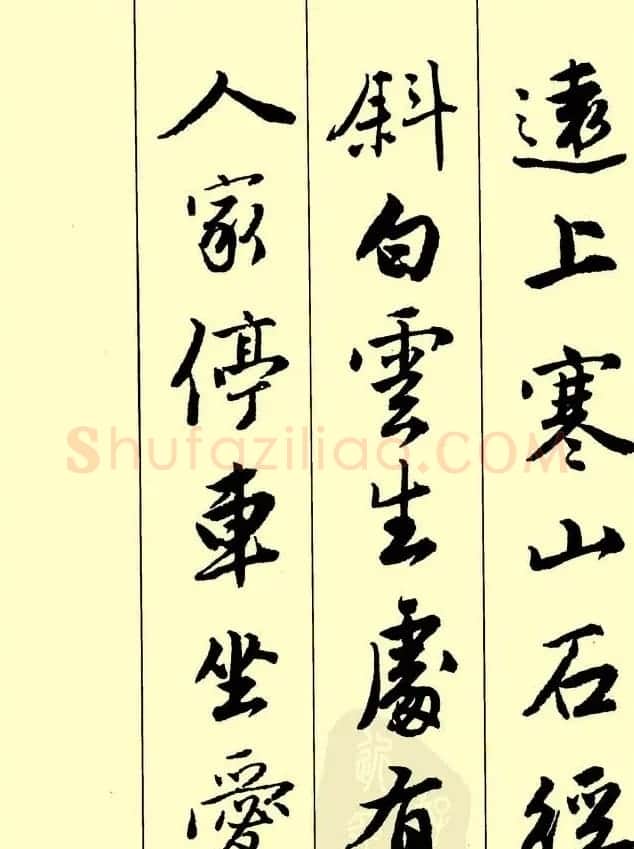 遠上寒山石徑
斜白雲生處有
人家停車坐愛
Shufaziliao.COM